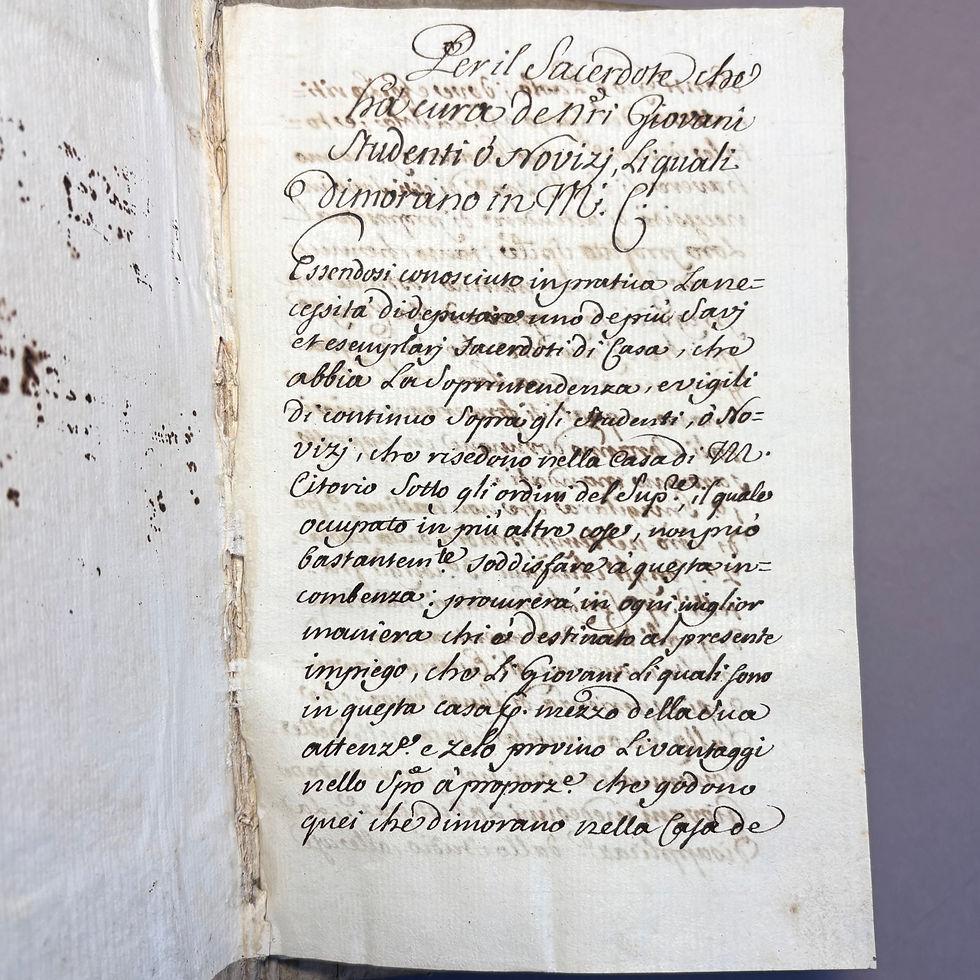 Per il Sacerdote che
hà cura de nr̃i Giovani
Studenti ò Novizj, li quali
dimorano in M. C.
Essendosi conosciuto in pratica La ne=
cessità di deputare uno de più Savj
et esemplarj Sacerdoti di Casa, che
abbia La Soprintendenza, e vigili
di continuo Sopra gli Studenti, ò No=
vizj, che risedono nella Casa di M.
Citorio Sotto gli ordini del Sup.re, il quale
occupato in più altre cose, non può
bastantem.te soddisfare à questa in=
combenza; procurerà in ogni miglior
maniera chi è destinato al presente
impiego, che Li Giovani Li quali sono
in questa casa p. mezzo della Sua
attenz.e e zelo provino Li vantaggi
nello Spõ à proporz.e che godono
quei che dimorano nella Casa de